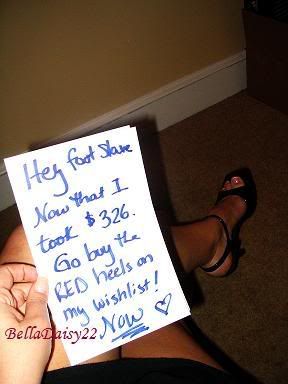 Hey foot slave
Now that I
took $326.
Go buy the
RED heels on
my wishlist!
Now
BellaDaisy22